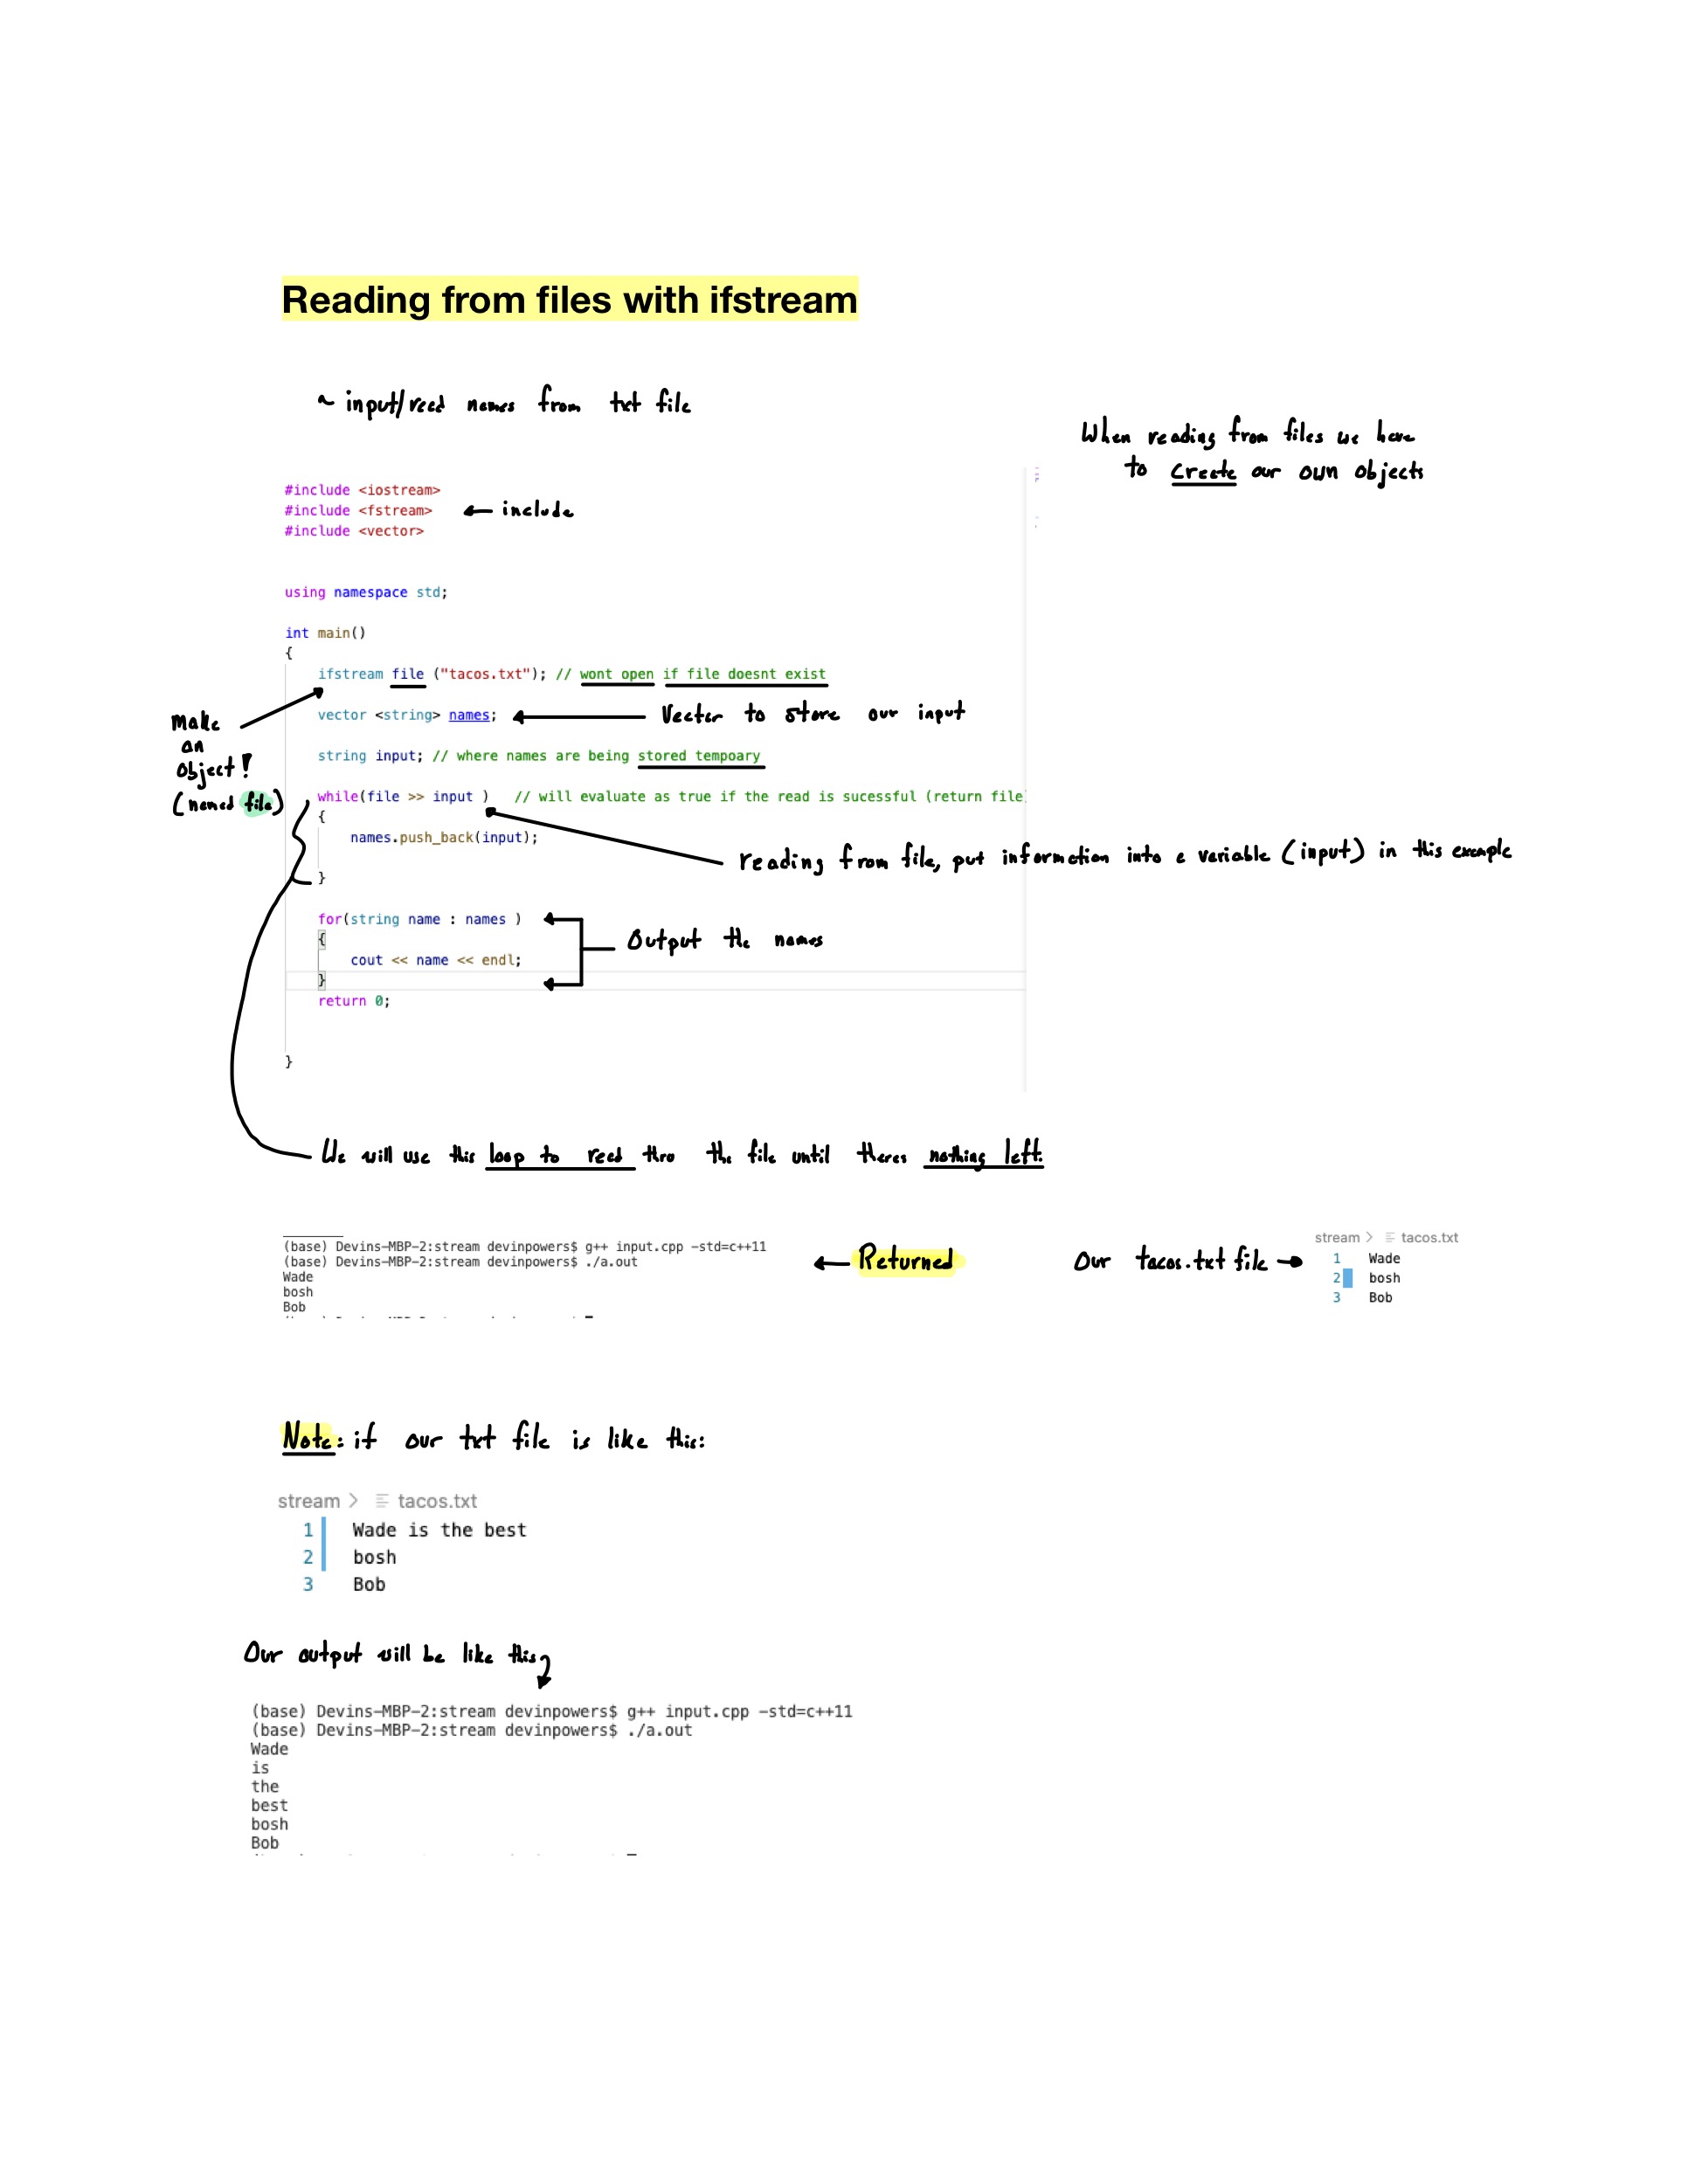 Reading from files with ifstream
~ input/read names from txt file
When reading from files we have
to create our own objects
#include <iostream>
#include <fstream> ← include
#include <vector>
using namespace std;
int main()
{
ifstream file ("tacos.txt"); // wont open if file doesnt exist
vector <string> names; ← Vector to store our input
Make
an
object!
(named file)
string input; // where names are being stored tempoary
while(file >> input ) // will evaluate as true if the read is sucessful (return file)
{
names.push_back(input);
reading from file, put information into a variable (input) in this example
}
for(string name : names )
{
Output the names
cout << name << endl;
}
return 0;
}
We will use this loop to read thro the file until theres nothing left.
(base) Devins-MBP-2:stream devinpowers$ g++ input.cpp -std=c++11
(base) Devins-MBP-2:stream devinpowers$ ./a.out
Wade
bosh
Bob
← Returned
Our tacos.txt file →
stream > tacos.txt
1 Wade
2 bosh
3 Bob
Note: if our txt file is like this:
stream > tacos.txt
1 Wade is the best
2 bosh
3 Bob
Our output will be like this
(base) Devins-MBP-2:stream devinpowers$ g++ input.cpp -std=c++11
(base) Devins-MBP-2:stream devinpowers$ ./a.out
Wade
is
the
best
bosh
Bob